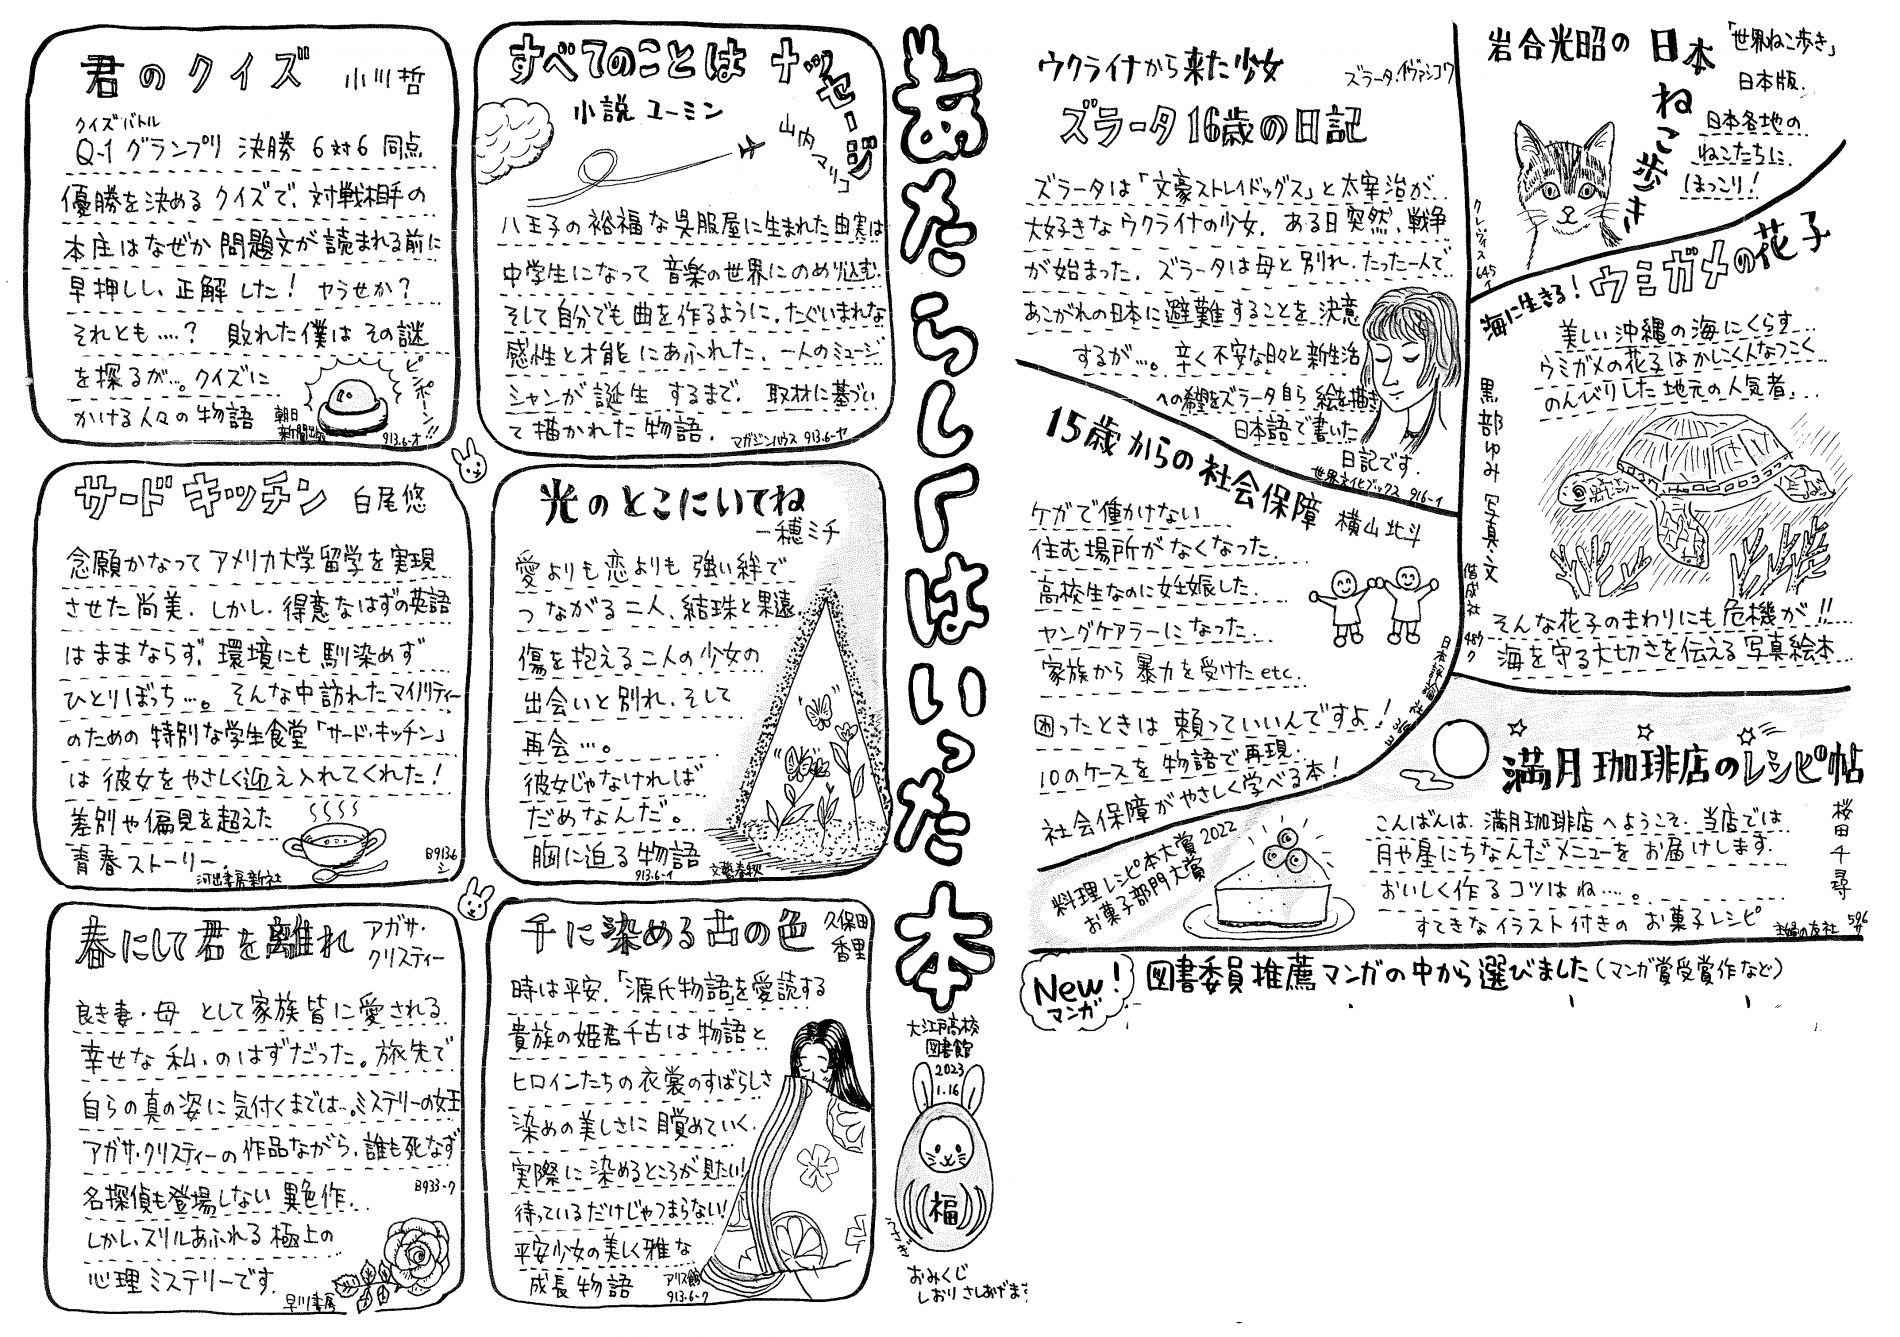 あたらしくはいった本
大江戸高校
図書館
2023
1.16
福
うさぎ
おみくじ
しおりさしあげます
君のクイズ 小川哲
クイズバトル
Q-1グランプリ 決勝 6対6 同点
優勝を決めるクイズで、対戦相手の
本庄はなぜか問題文が読まれる前に
早押しし、正解した! ヤラセか?
それとも…? 敗れた僕はその謎
を探るが…。クイズに
かける人々の物語
ピンポーン!!
朝日
新聞出版
913.6-オ
すべてのことはメッセージ
小説 ユーミン
山内マリコ
八王子の裕福な呉服屋に生まれた由実は
中学生になって 音楽の世界にのめり込む.
そして自分でも曲を作るように.たぐいまれな
感性と才能にあふれた、一人のミュージ
シャンが誕生 するまで. 取材に基づい
て描かれた物語.
マガジンハウス 913.6-ヤ
サード・キッチン 白尾悠
念願かなってアメリカ大学留学を実現
させた尚美. しかし、得意なはずの英語
はままならず、環境にも馴染めず
ひとりぼっち…。そんな中訪れたマイノリティー
のための特別な学生食堂「サード・キッチン」
は彼女をやさしく迎え入れてくれた!
差別や偏見を超えた
青春ストーリー.
河出書房新社
B913.6
シ
光のとこにいてね
一穂ミチ
愛よりも恋よりも強い絆で
つながる二人、結珠と果遠
傷を抱える二人の少女の
出会いと別れ、そして
再会…。
彼女じゃなければ
だめなんだ。
胸に迫る物語
913.6-イ
文藝春秋
春にして君を離れ アガサ・
クリスティー
良き妻・母 として家族皆に愛される
幸せな私、のはずだった。旅先で
自らの真の姿に気付くまでは…。ミステリーの女王
アガサ・クリスティーの作品ながら、誰も死なず
名探偵も登場しない異色作.
B933-ク
しかし、スリルあふれる極上の
心理ミステリーです.
早川書房
千に染める古の色 久保田
香里
時は平安.「源氏物語」を愛読する
貴族の姫君千古は物語と
ヒロインたちの衣裳のすばらしさ
染めの美しさに目覚めていく.
実際に染めるところが見たい!
待っているだけじゃつまらない!
平安少女の美しく雅な
成長物語
アリス館
913.6-ク
ウクライナから来た少女
ズラータ・イヴァシコワ
ズラータ16歳の日記
ズラータは「文豪ストレイドッグス」と太宰治が
大好きなウクライナの少女. ある日突然、戦争
が始まった. ズラータは母と別れ.たった一人で
あこがれの日本に避難することを決意
するが…。辛く不安な日々と新生活
への希望をズラータ自ら絵を描き
日本語で書いた
日記です.
世界文化ブックス 916-イ
15歳からの社会保障 横山北斗
ケガで働かけない
住む場所がなくなった.
高校生なのに妊娠した.
ヤングケアラーになった.
家族から暴力を受けたetc.
困ったときは頼っていいんですよ!
10のケースを物語で再現.
社会保障がやさしく学べる本!
日本評論社
岩合光昭の日本ねこ歩き
「世界ねこ歩き」
日本版.
日本各地の
ねこたちに
ほっこり!
クレヴィス 645イ
海に生きる!ウミガメの花子
黒部ゆみ 写真・文
美しい沖縄の海にくらす
ウミガメの花子はかしこくんなつこく
のんびりした地元の人気者.
そんな花子のまわりにも危機が!!
海を守る大切さを伝える写真絵本
偕成社 487ク
満月珈琲店のレシピ帖
桜田千尋
料理レシピ本大賞2022
お菓子部門大賞
こんばんは、満月珈琲店へようこそ.当店では
月や星にちなんだメニューをお届けします.
おいしく作るコツはね…。
すてきなイラスト付きのお菓子レシピ
主婦の友社 596
サ
New!
マンガ
図書委員推薦マンガの中から選びました(マンガ賞受賞作など)